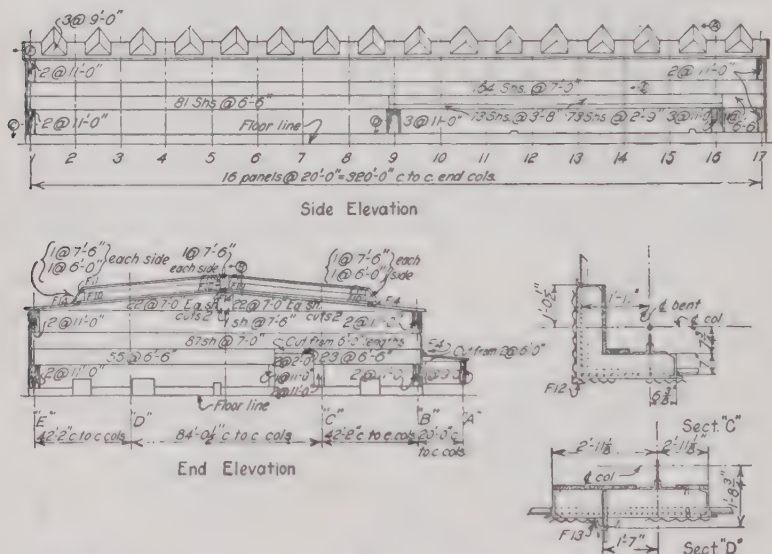 3@9'-0"
2@11'-0"
164 Shs. @ 7'-0"
2@11'-0"
81 Shs @ 6'-6"
2@11'-0"
Floor line
3@11'-0"
13 Shs. @ 3'-8"
73 Shs @ 2'-9"
3@11'-0"
6'-6"
1 2 3 4 5 6 7 8 9 10 11 12 13 14 15 16 17
16 panels @ 20'-0" = 320'-0" c to c. end cols.
Side Elevation
1@7'-6"
1@6'-0"
each side
1@7'-6"
each side
1@7'-6"
1@6'-0"
each side
22@7'-0 Ea sh.
cuts 2
22@7'-0 Ea sh.
cuts 2
2@11'-0"
1 sh @ 7'-6"
87 sh @ 7'-0"
Cut from 5'-0" lengths
55 @ 6'-6"
23 @ 6'-6"
Cut from 2@6'-0"
2@11'-0"
2@2'-0"
1@11'-0"
2@11'-0"
Floor line
"E" "D" "C" "B" "A"
42'-2" c to c cols.
84'-0½" c to c cols
42'-2" c to c. cols
20'-0" c
to c cols
End Elevation
1'-0½"
℄ bent
℄ col
F12
6⅜"
Sect. "C"
2'-11⅛"
2'-11⅛"
℄ col
1'-8¾"
F13
1'-7"
Sect "D"